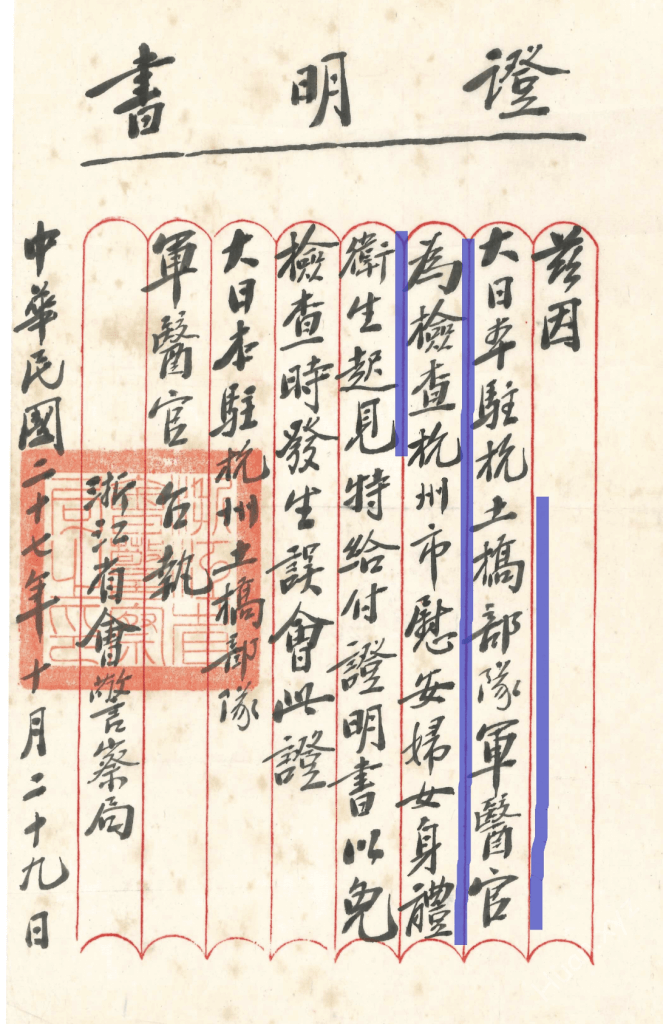 證明書
茲因
大日本駐杭土橋部隊軍醫官
為檢查杭州市慰安婦女身體
衛生起見特給付證明書以免
檢查時發生誤會此證
大日本駐杭州土橋部隊
軍醫官 台執
浙江省會警察局
中華民國二十七年十月二十九日